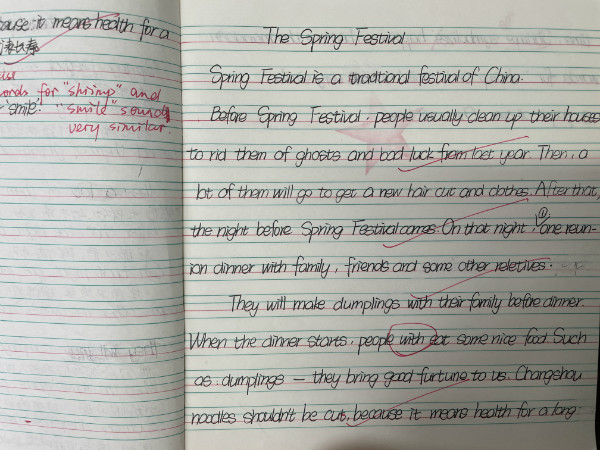 cause it means health for a
长寿
words for "shrimp" and
"smile". "smile" sound
very similar.
The Spring Festival
Spring Festival is a tradtional festival of China.
Before Spring Festival, people usually clean up their houses
to rid them of ghosts and bad luck from last year. Then, a
lot of them will go to get a new hair cut and clothes. After that,
the night before Spring Festival comes. On that night, one reun-
ion dinner with family, friends and some other reletives.
They will make dumplings with their family before dinner.
When the dinner starts, people with eat some nice food. Such
as: dumplings — they bring good furtune to us. Changshou
noodles shouldn't be cut, because it means health for a long